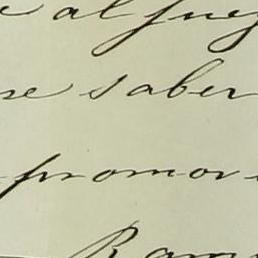 al jue
se saber
promov
Ram